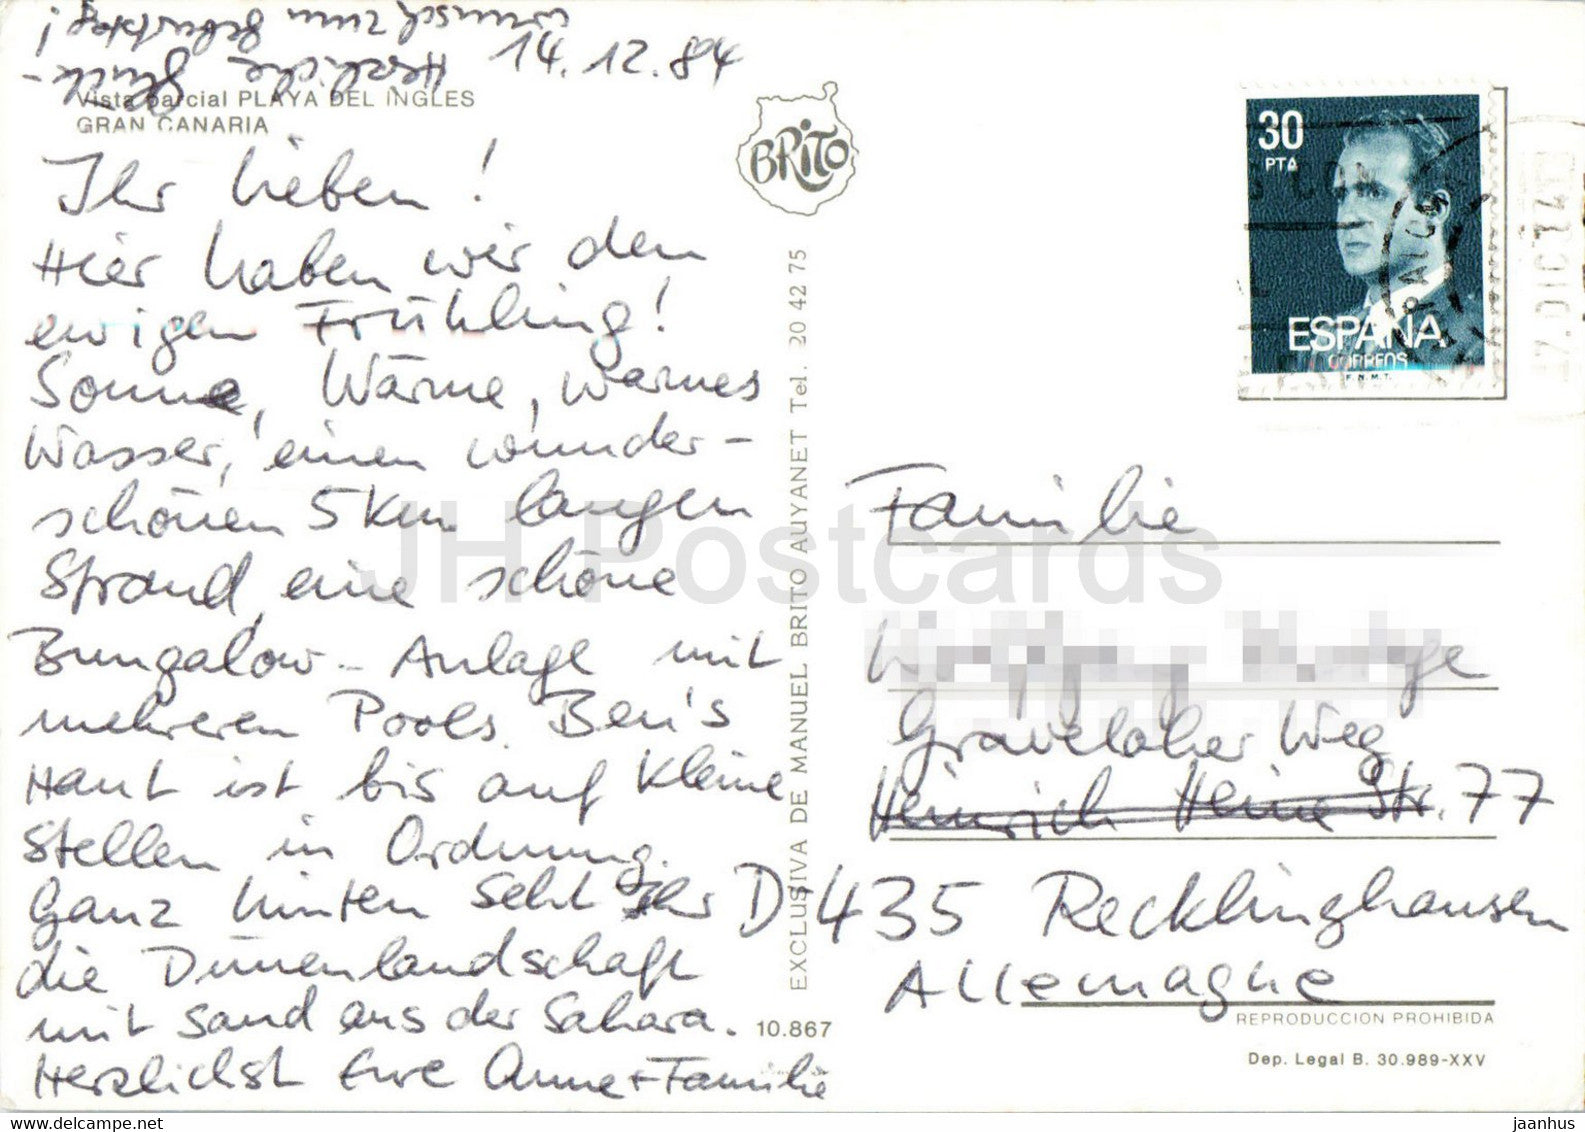 Herzliche Glück-
wunsch zum Geburtstag!
14.12.84
Vista parcial PLAYA DEL INGLES
GRAN CANARIA
Ihr Lieben!
Hier haben wir den
ewigen Frühling!
Sonne, Wärme, warmes
Wasser, einen wunder-
schönen 5 km langen
Strand, eine schöne
Bungalow-Anlage mit
mehreren Pools. Ben's
Haut ist bis auf kleine
Stellen in Ordnung.
Ganz hinten seht Ihr
die Dünenlandschaft
mit Sand aus der Sahara.
Herzlichst Eure Anne + Familie
BRITO
EXCLUSIVA DE MANUEL BRITO AUYANET Tel. 20 42 75
10.867
30
PTA
ESPAÑA
CORREOS
F.N.M.T.
DIC 84
Familie
Gravelaher Weg
Heinrich Heine Str. 77
D-435 Recklinghausen
Allemagne
REPRODUCCION PROHIBIDA
Dep. Legal B. 30.989-XXV
JH Postcards
www.delcampe.net
jaanhus